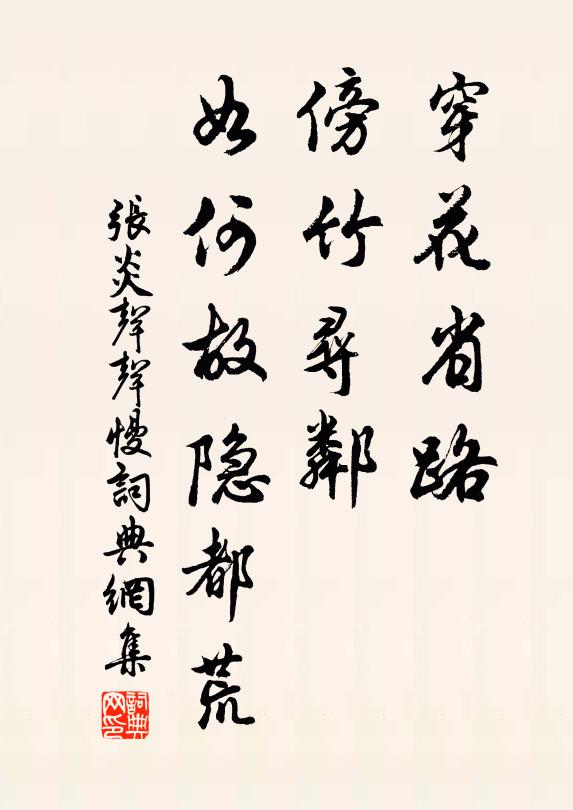 穿花省路
傍竹尋鄰
如何故隐都荒
張炎聲聲慢詞典網集
詞典网印